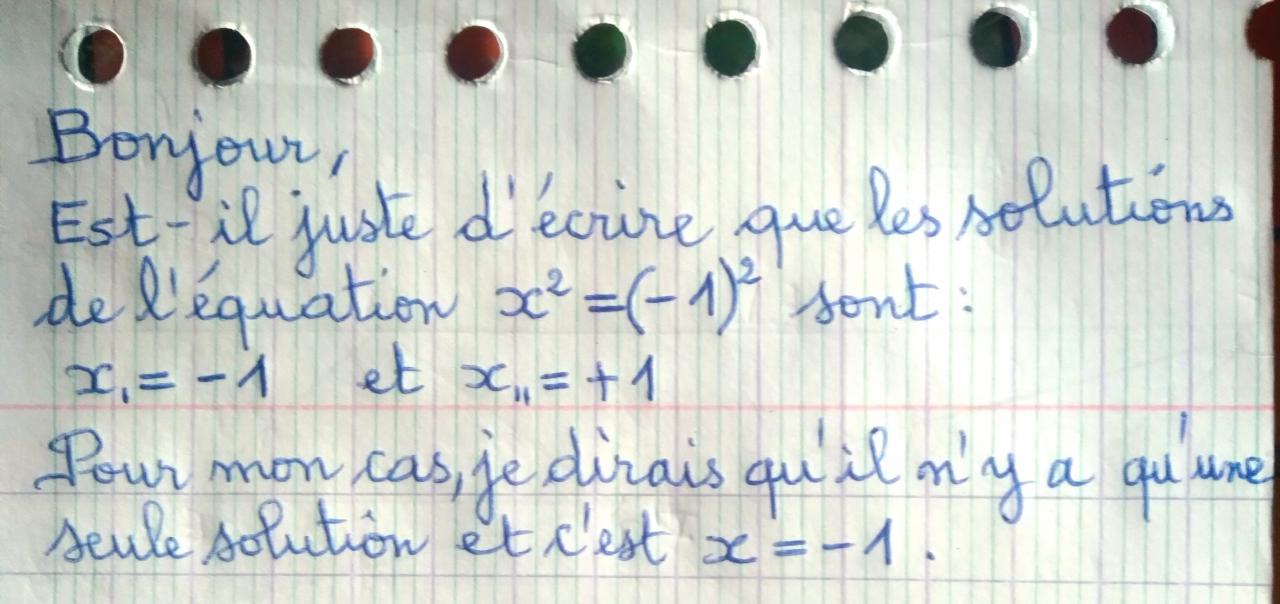 Bonjour,
Est-il juste d'écrire que les solutions
de l'équation x² = (-1)² sont :
x₁ = -1 et x₁₁ = +1
Pour mon cas, je dirais qu'il n'y a qu'une
seule solution et c'est x = -1.